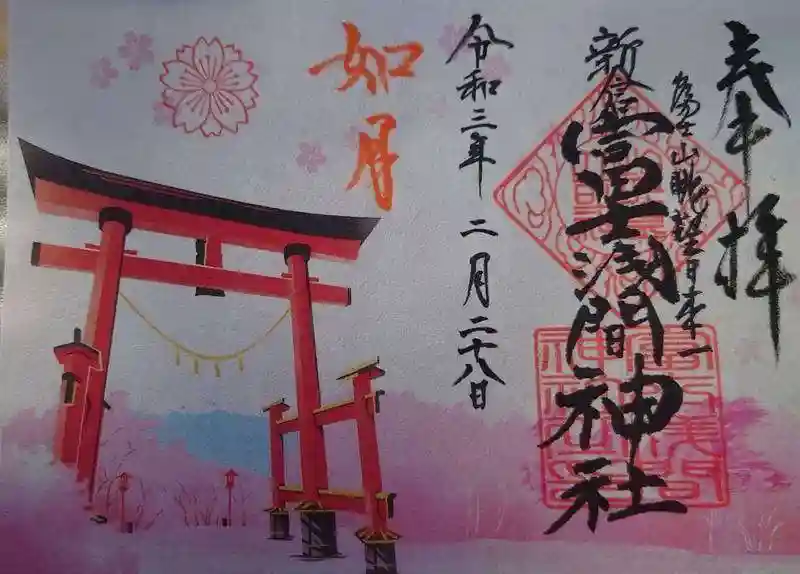 奉拝
富士山眺望日本一
新倉富士浅間神社
令和三年 二月二十八日
如月